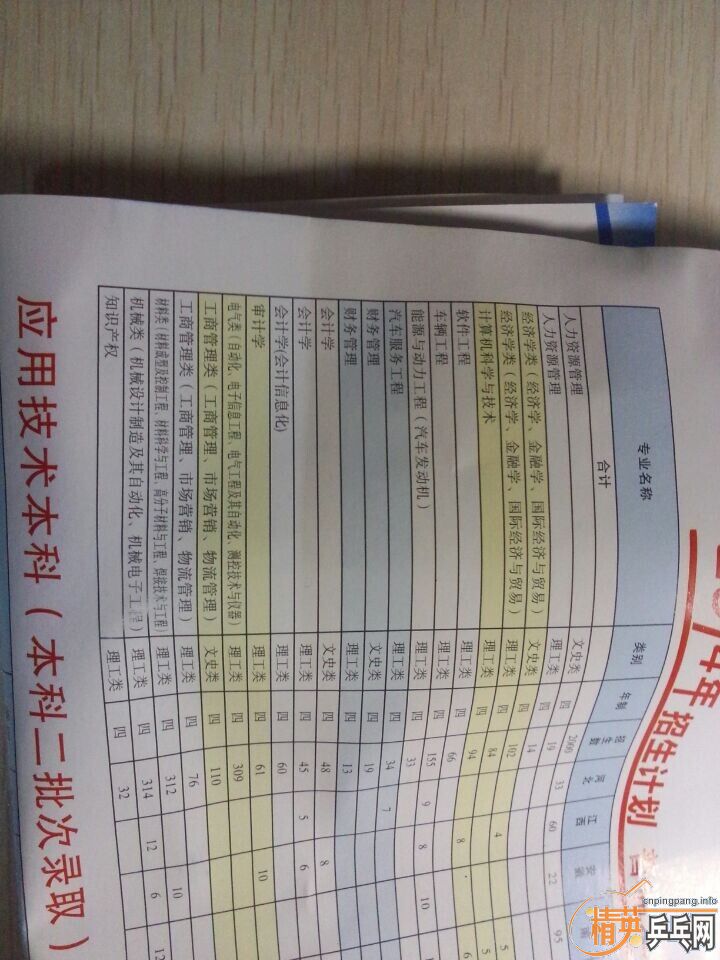 14年招生计划
专业名称 类别 年制 招生数 河北 江西 安徽
合计 2000 33 60 22 95
人力资源管理 文史类 四 19
人力资源管理 理工类 四 14
经济学类(经济学、金融学、国际经济与贸易) 文史类 四 102
经济学类(经济学、金融学、国际经济与贸易) 理工类 四 84 4 5
计算机科学与技术 理工类 四 94
软件工程 理工类 四 66 8
车辆工程 理工类 四 155 9 8 10
能源与动力工程(汽车发动机) 理工类 四 33
汽车服务工程 理工类 四 34 7
财务管理 文史类 四 19
财务管理 理工类 四 13
会计学 文史类 四 48 8
会计学 理工类 四 45 5 6
会计学(会计信息化) 理工类 四 60
审计学 理工类 四 61 10
电气类(自动化、电子信息工程、电气工程及其自动化、测控技术与仪器) 理工类 四 309
工商管理类(工商管理、市场营销、物流管理) 文史类 四 110
工商管理类(工商管理、市场营销、物流管理) 理工类 四 76
材料类(材料成型及控制工程、材料科学与工程、高分子材料与工程、焊接技术与工程) 理工类 四 312 10
机械类(机械设计制造及其自动化、机械电子工程) 理工类 四 314 12 6 12
知识产权 理工类 四 32
应用技术本科(本科二批次录取)
cnpingpang.info
精英乒乓网